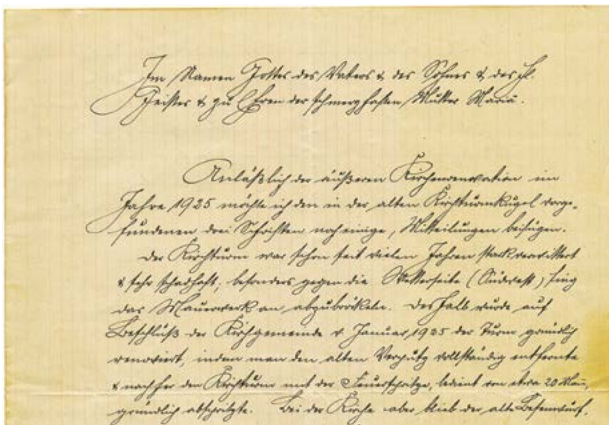 Im Namen Gottes des Vaters & des Sohnes & des hl.
Geistes & zu Ehren der schmerzhaften Mutter Maria.
Anläßlich der äußeren Kirchenrenovation im
Jahre 1925 möchte ich den in der alten Kirchturmkugel vorge-
fundenen drei Schriften noch einige Mitteilungen beifügen.
Der Kirchturm war schon seit vielen Jahren stark verwittert
& sehr schadhaft, besonders gegen die Wetterseite (Südwest) fing
das Mauerwerk an abzubröckeln. Deshalb wurde auf
Beschluß der Kirchgemeinde v. Januar 1925 der Turm gründlich
renoviert, indem man den alten Verputz vollständig entfernte
& nachher den Kirchturm mit der Feuerspritze, bedient von etwa 20 Mann,
gründlich abspritzte. Bei der Kirche aber blieb der alte Besenwurf,